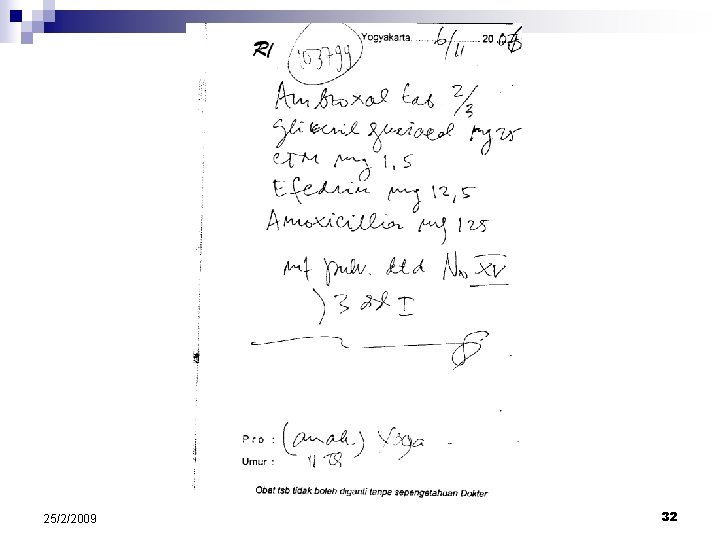 R/ 103799 Yogyakarta, 6/11 20 06
Ambroxol tab 2/3
Gliceril guaiacol mg 25
CTM mg 1,5
Efedrin mg 12,5
Amoxicillin mg 125
mf pulv. dtd No XV
∫ 3 dd I
Pro : (anak) Yoga
Umur : 11 th
Obat tsb tidak boleh diganti tanpa sepengetahuan Dokter
25/2/2009
32